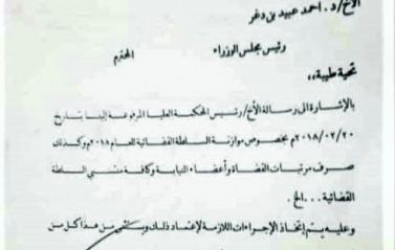 الأخ/د. احمد عبيد بن دغر
رئيس مجلس الوزراء المحترم
تحية طيبة،،
بالإشارة الى رسالة الأخ/رئيس المحكمة العليا المرفوعة إلينا بتاريخ
٢٠١٨/٠٢/٢٠م بخصوص موازنة السلطة القضائية للعام ٢٠١٨م وكذلك
صرف مرتبات القضاة وأعضاء النيابة وكافة منتسبي السلطة
القضائية...الخ.
وعليه يتم إتخاذ الإجراءات اللازمة لإعتماد ذلك ويستثنى من هذا كل من